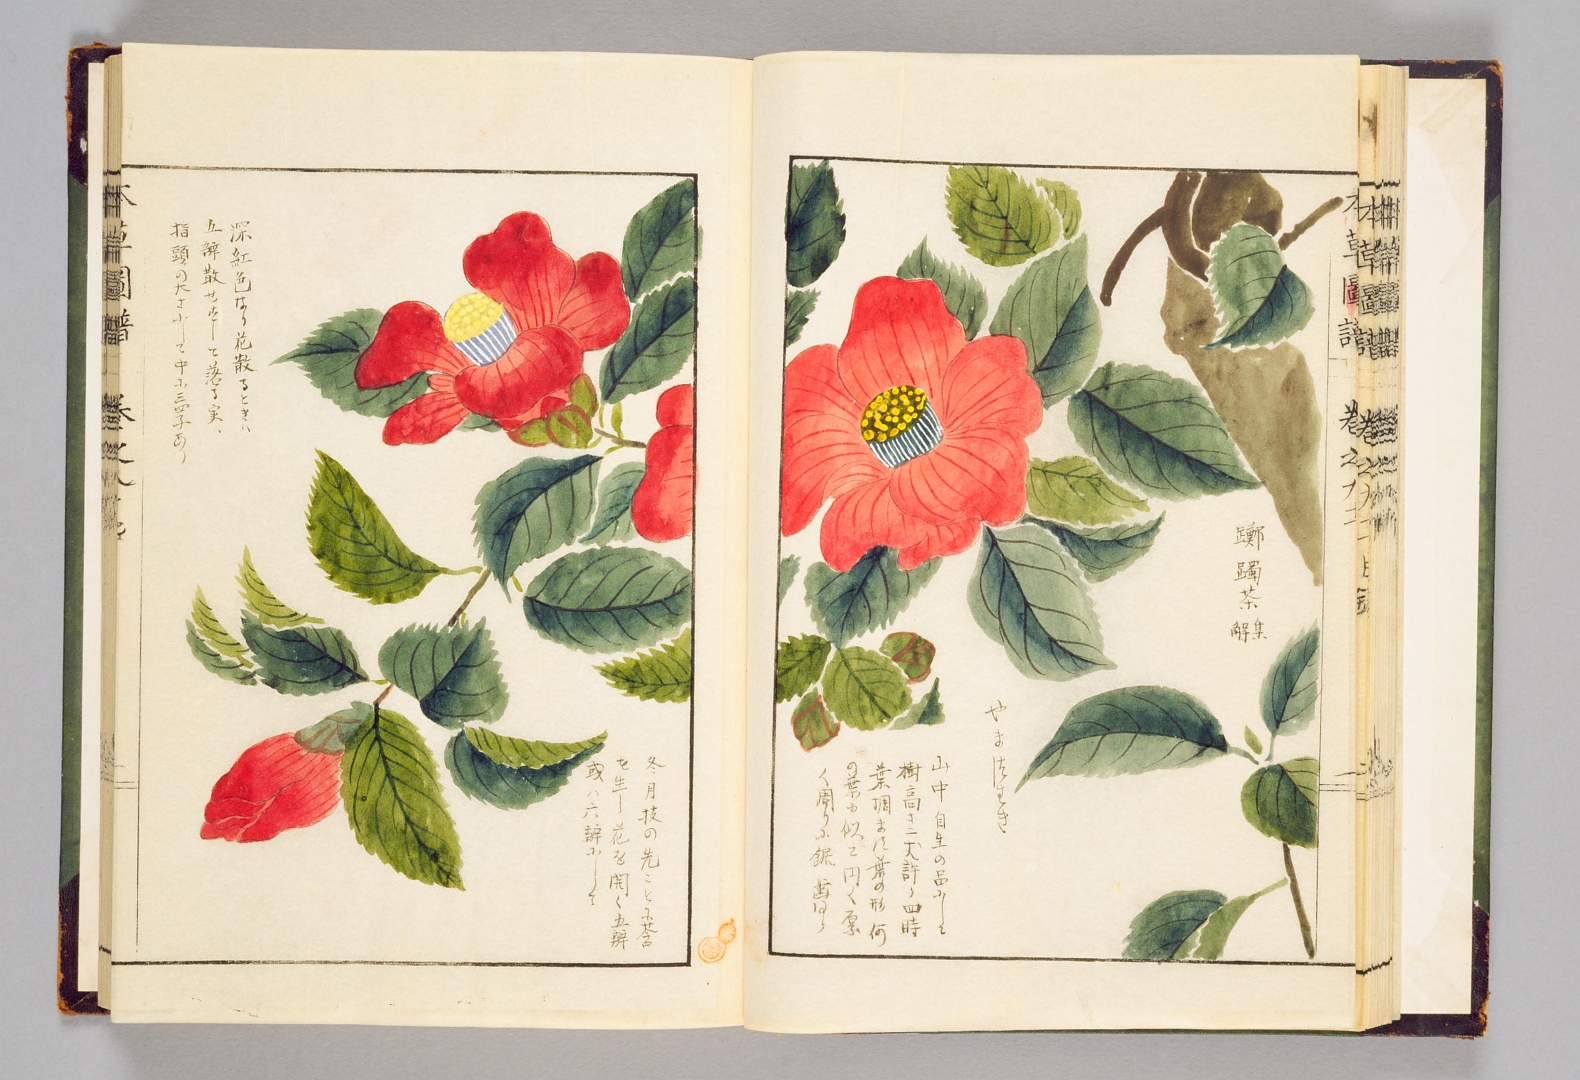 躑躅茶 集解
やまつばき
山中自生の品にして
樹高さ二丈許り四時
葉凋まず葉の形
の葉に似て円く厚
く周りに鋸歯あり
冬月枝の先ごとに莟
を生し花を開く五瓣
或ハ六瓣にして
深紅色なり花散るときハ
五瓣散せずして落る実ハ
指頭の大さにして中に三四子あり
本草圖譜 巻之